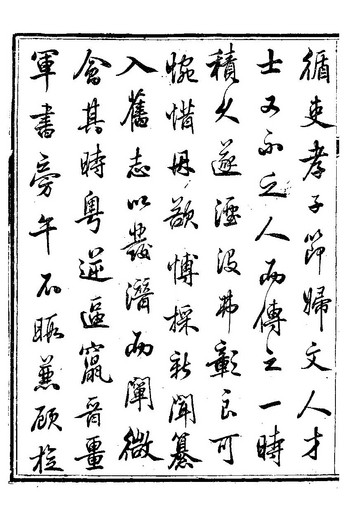 循吏孝子節婦文人才
士又不乏人而傳之一時
積久遂湮沒弗彰良可
惋惜毋欲博採新聞纂
入舊志以發潛而闡微
會其時粵逆逼竄晉疆
軍書旁午不暇兼顧檢